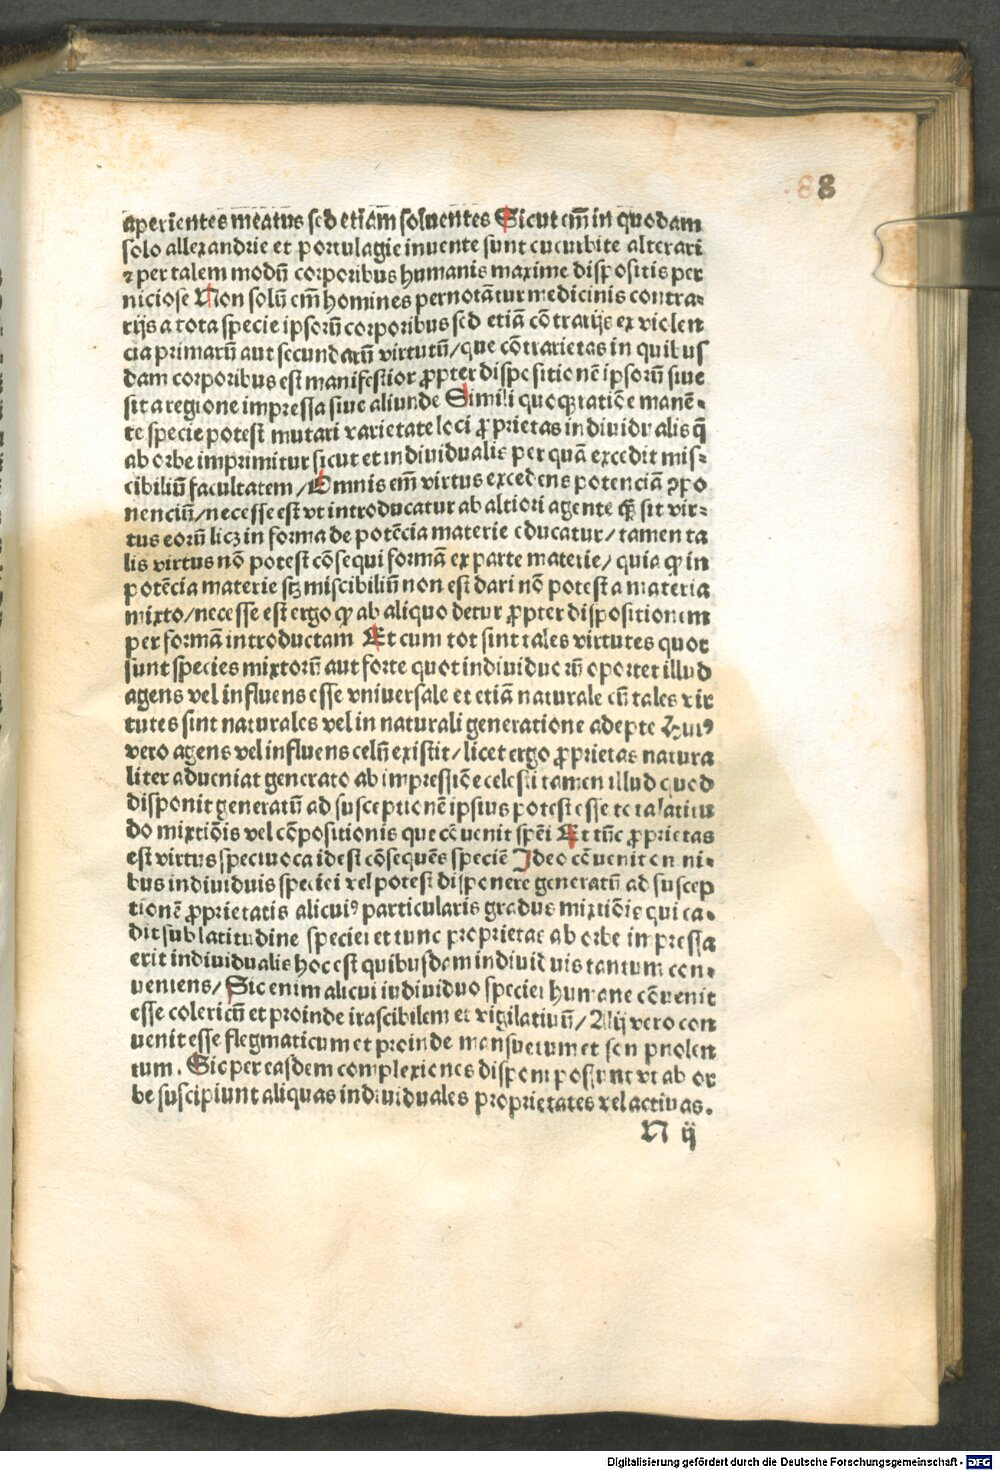 88
aperiẽntes meatus sed etiam soluentes Sicut em̃ in quodam
solo allexandrie et portulagie inuente sunt cucurbite alterari
⁊ per talem modũ corporibus humanis maxime dispositis per
niciose Non solũ em̃ homines pernotãtur medicinis contra-
rijs a tota specie ipsorũ corporibus sed etiã cõtrarijs ex violen
cia primarũ aut secundarũ virtutũ/ que cõtrarietas in quibus
dam corporibus est manifestior ꝓpter dispositionẽ ipsorũ siue
sit a regione impressa siue aliunde Simili quoqꝫ ratiõe manẽ-
te specie potest mutari varietate loci ꝓprietas individualis q̃
ab orbe imprimitur sicut et individualis per quã excedit mis-
cibiliũ facultatem/ Omnis em̃ virtus excedens potenciã ꝯpo
nenciũ/ necesse est vt introducatur ab altiori agente qꝫ sit vir-
tus eorũ licꝫ in forma de potẽcia materie educatur/ tamen ta
lis virtus nõ potest cõsequi formã ex parte materie/ quia ꝙ in
potẽcia materie scꝫ miscibiliũ non est dari nõ potest a materia
mixto/ necesse est ergo ꝙ ab aliquo detur ꝓpter dispositionem
per formã introductam Et cum tot sint tales virtutes quot
sunt species mixtorũ aut forte quot individuorũ oportet illud
agens vel influens esse vniuersale et etiã naturale cũ tales vir
tutes sint naturales vel in naturali generatione adepte Huiꝰ
vero agens vel influens celũ existit/ licet ergo ꝓprietas natura
liter adueniat generato ab impressiõe celesti tamen illud quod
disponit generatũ ad susceptionẽ ipsius potest esse tota latitu
do mixtiõis vel cõpositionis que cõuenit spẽi Et tũc ꝓprietas
est virtus speciuoca idest cõsequẽs speciẽ Ideo cõuenit omni-
bus individuis speciei vel potest disponere generatũ ad suscep
tionẽ ꝓprietatis alicuiꝰ particularis gradus mixtiõis qui ca-
dit sub latitudine speciei et tunc proprietas ab orbe impressa
erit individualis hoc est quibusdam individuis tantum con-
ueniens/ Sic enim alicui individuo speciei humane cõuenit
esse colericũ et proinde irascibilem et vigilatiuũ/ Alij vero con
uenit esse flegmaticum et proinde mansuetum et sonpnolen
tum. Sic per easdem complexiones disponi possunt vt ab or
be suscipiunt aliquas individuales proprietates vel actiuas.
N ij
Digitalisierung gefördert durch die Deutsche Forschungsgemeinschaft - DFG